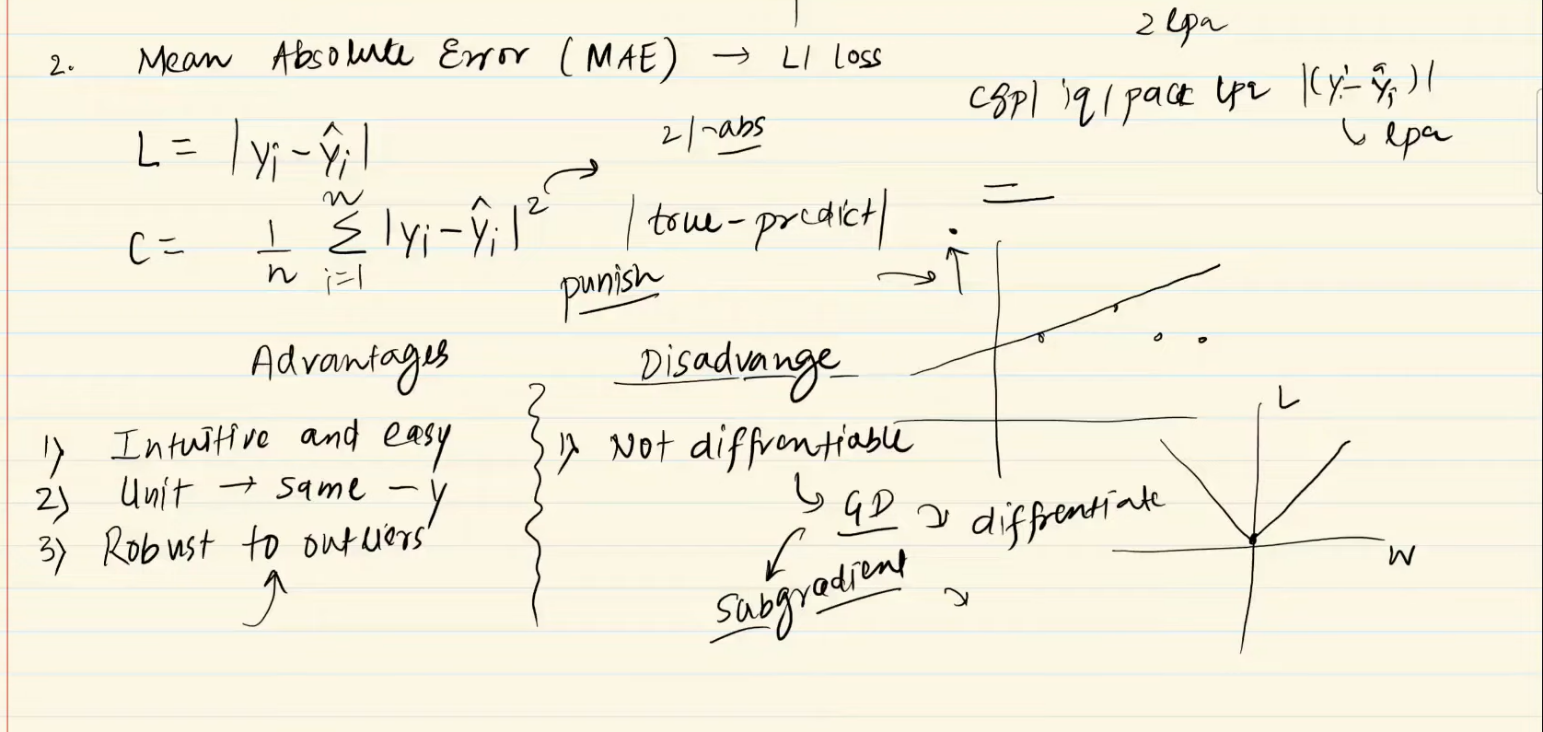 2 lpa
2. Mean Absolute Error (MAE) → L1 loss
cgp| iq | pack lpa |(yi - ŷi)|
↳ lpa
L = |yi - ŷi|
2 | ¬abs
C = 1/n Σ i=1 n |yi - ŷi|²
|true - predict|
punish
Advantages
Disadvange
1) Intuitive and easy
2) Unit → same - y
3) Robust to outliers
1) Not diffrentiable
↳ GD ↘ diffrentiate
Subgradient
L
W